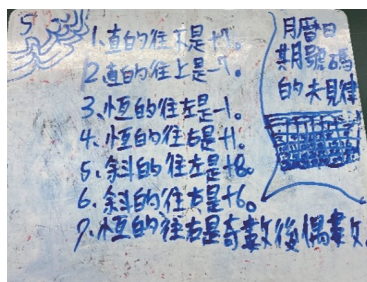 1.直的往下是+7。
2.直的往上是-7。
3.恆的往左是-1。
4.恆的往右是+1。
5.斜的往左是+8。
6.斜的往右是+6。
7.恆的往右是奇數後偶數。
月曆日
期號碼
的規律